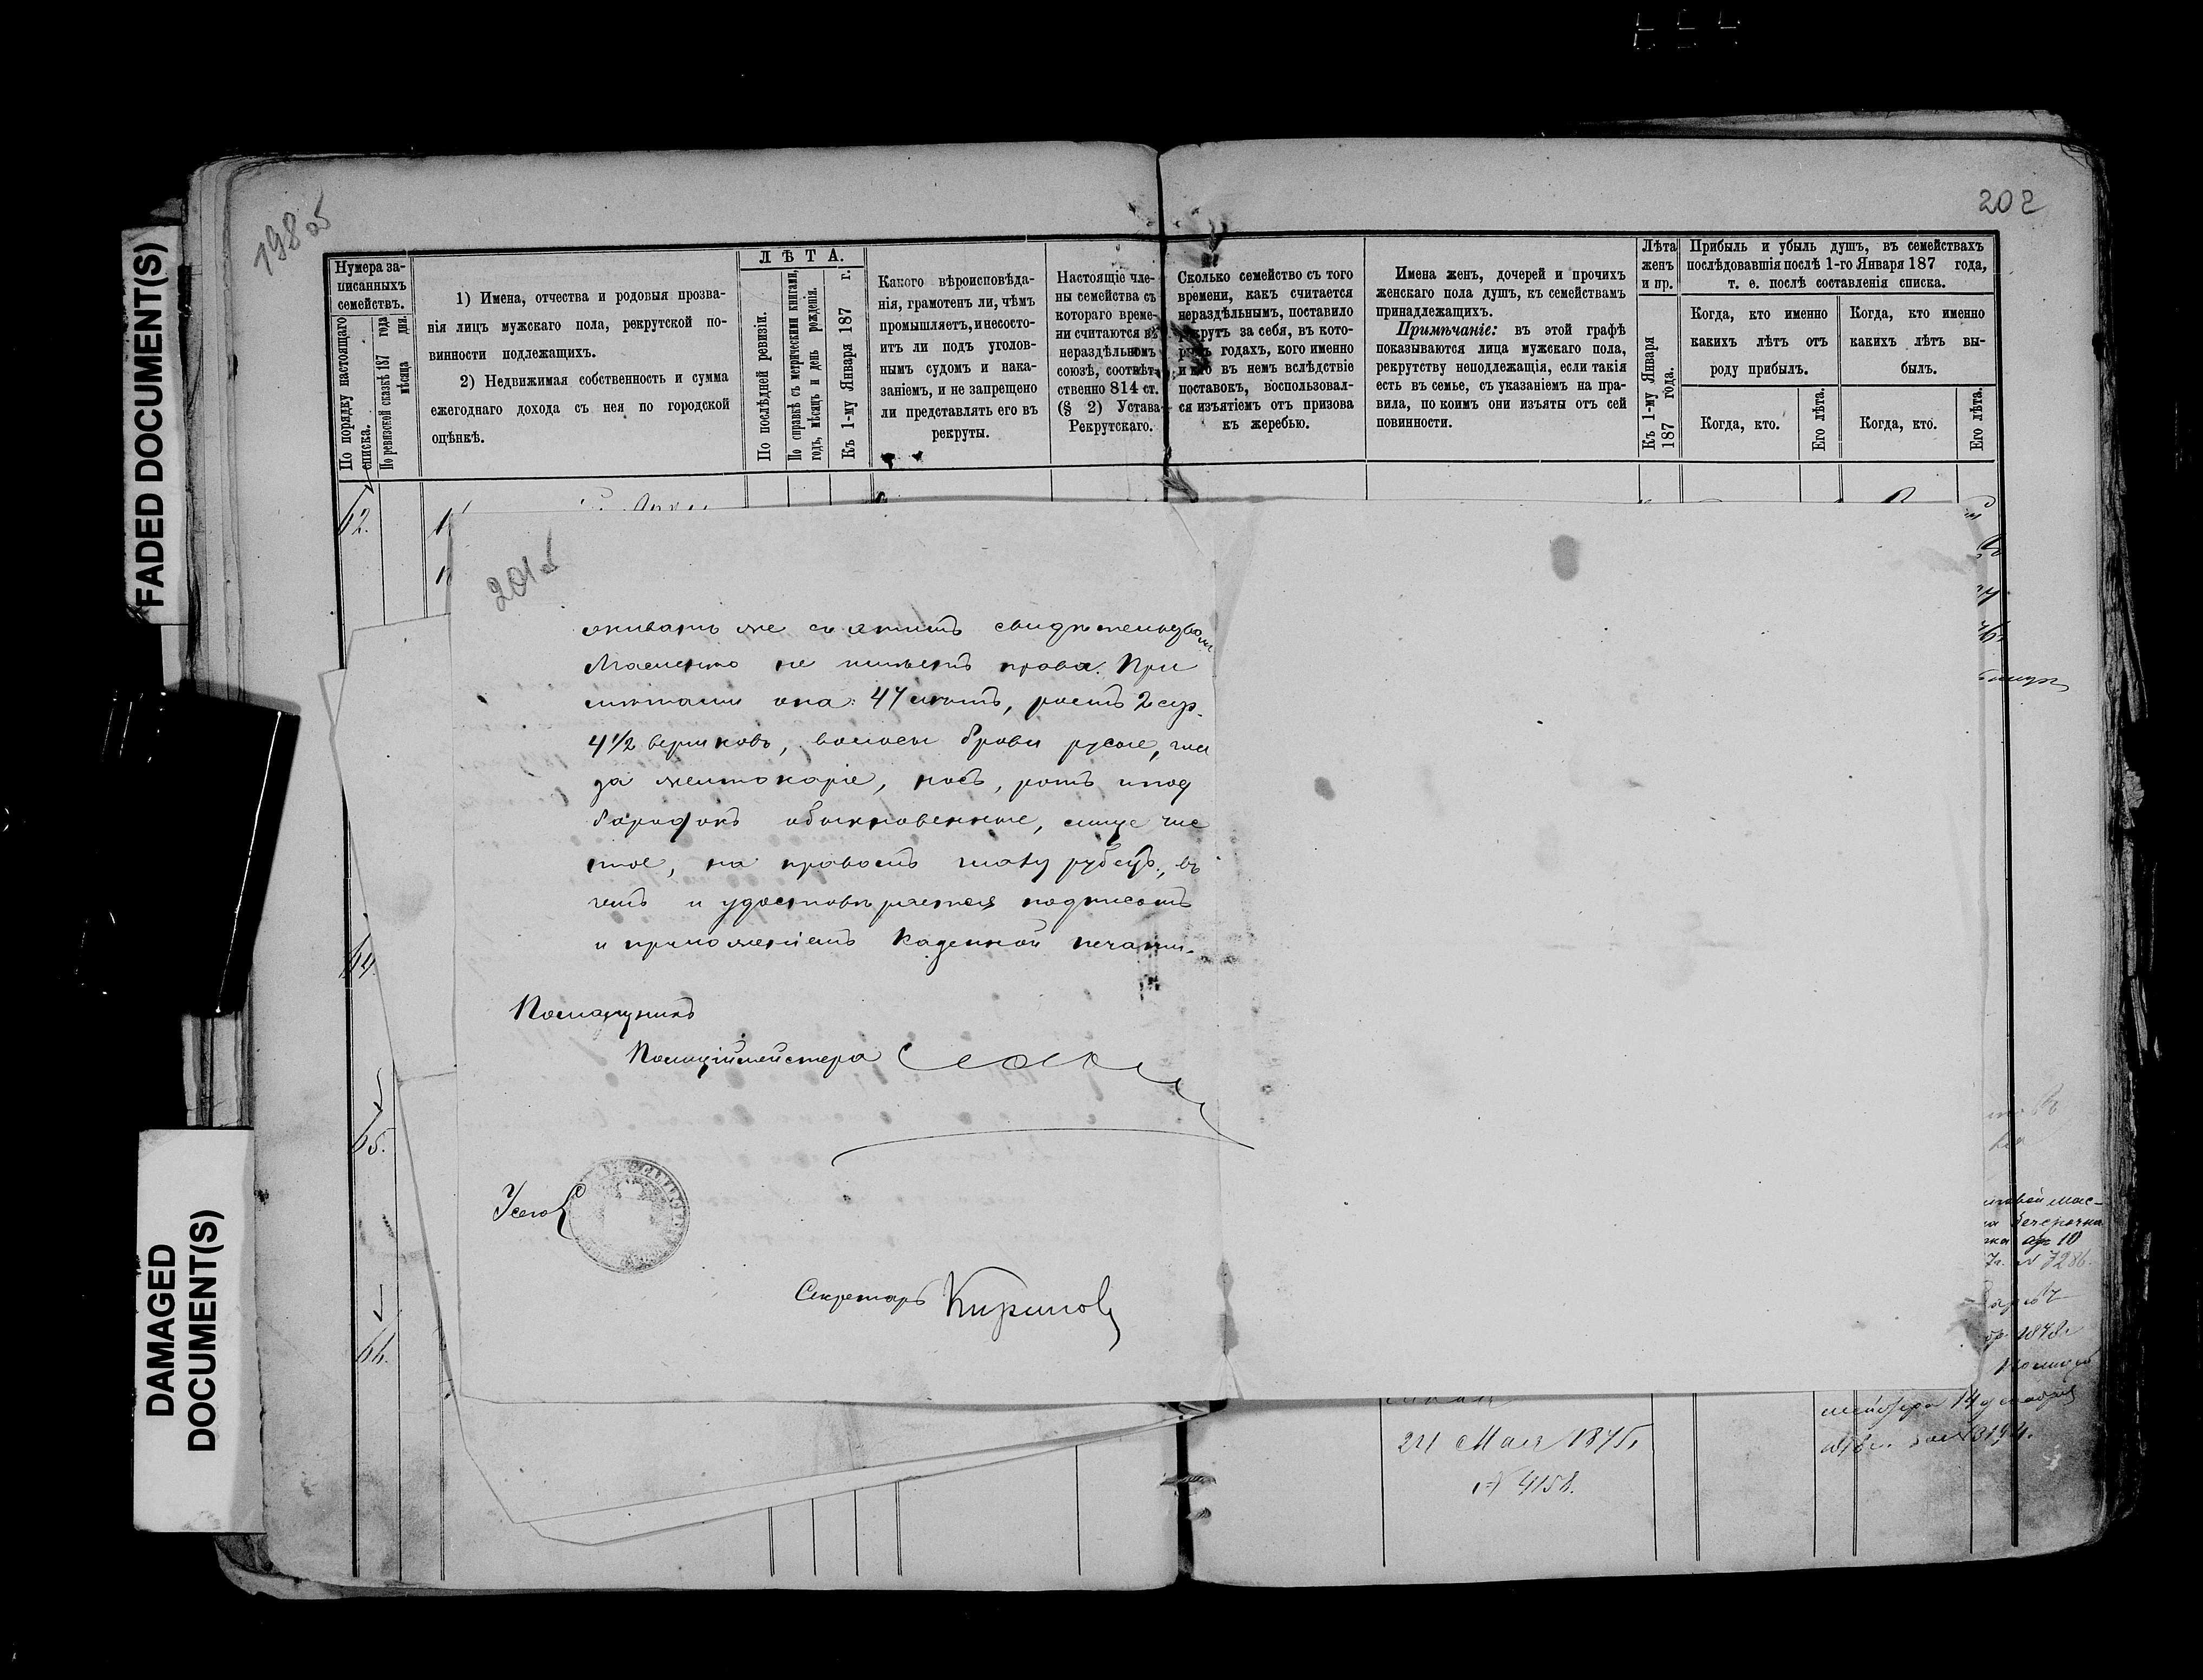 202
198 об
FADED DOCUMENT(S)
DAMAGED
DOCUMENT(S)
Нумера за-
писанныхъ
семействъ.
По порядку настоящаго
списка.
По ревизской сказкѣ 187 года
мѣсяца дня.
1) Имена, отчества и родовыя прозва-
нія лицъ мужскаго пола, рекрутской по-
винности подлежащихъ.
2) Недвижимая собственность и сумма
ежегоднаго дохода съ нея по городской
оцѣнкѣ.
ЛѢТА.
По послѣдней ревизіи.
По справкѣ съ метрическими книгами,
годъ, мѣсяцъ и день рожденія.
Къ 1-му Января 187 г.
Какого вѣроисповѣда-
нія, грамотенъ ли, чѣмъ
промышляетъ, и несосто-
итъ ли подъ уголов-
нымъ судомъ и нака-
заніемъ, и не запрещено
ли представлять его въ
рекруты.
Настоящіе чле-
ны семейства съ
котораго време-
ни считаются въ
нераздѣльномъ
союзѣ, соотвѣт-
ственно 814 ст.
(§ 2) Устава
Рекрутскаго.
Сколько семейство съ того
времени, какъ считается
нераздѣльнымъ, поставило
рекрутъ за себя, въ кото-
рыхъ годахъ, кого именно
и кто въ немъ вслѣдствіе
поставокъ, воспользовал-
ся изъятіемъ отъ призова
къ жеребью.
Имена женъ, дочерей и прочихъ
женскаго пола душъ, къ семействамъ
принадлежащихъ.
Примѣчаніе: въ этой графѣ
показываются лица мужскаго пола,
рекрутству неподлежащія, если такія
есть въ семьѣ, съ указаніемъ на пра-
вила, по коимъ они изъяты отъ сей
повинности.
Лѣта
женъ
и пр.
Къ 1-му Января
187 года.
Прибыль и убыль душъ, въ семействахъ
послѣдовавшія послѣ 1-го Января 187 года,
т. е. послѣ составленія списка.
Когда, кто именно
какихъ лѣтъ отъ
роду прибылъ.
Когда, кто именно
какихъ лѣтъ вы-
былъ.
Когда, кто.
Его лѣта.
Когда, кто.
Его лѣта.
62.
64
65.
66.
201 об
живать же съ этимъ свидѣтельствомъ
Масленко не имѣетъ права. При
мѣтами она: 47 лѣтъ, ростъ 2 ар.
4 1/2 вершковъ, волосы брови русые, гла
за желтокаріе, носъ, ротъ и под
бородокъ обыкновенные, лице чис
тое, на правомъ глазу рубецъ, въ
чемъ и удостовѣряется подписомъ
и приложеніемъ казенной печати.
Помощникъ
Полиціймейстера
Секретарь Кириловъ
24 Мая 1875,
№ 4158.
ар 10
№ 7286.
1878